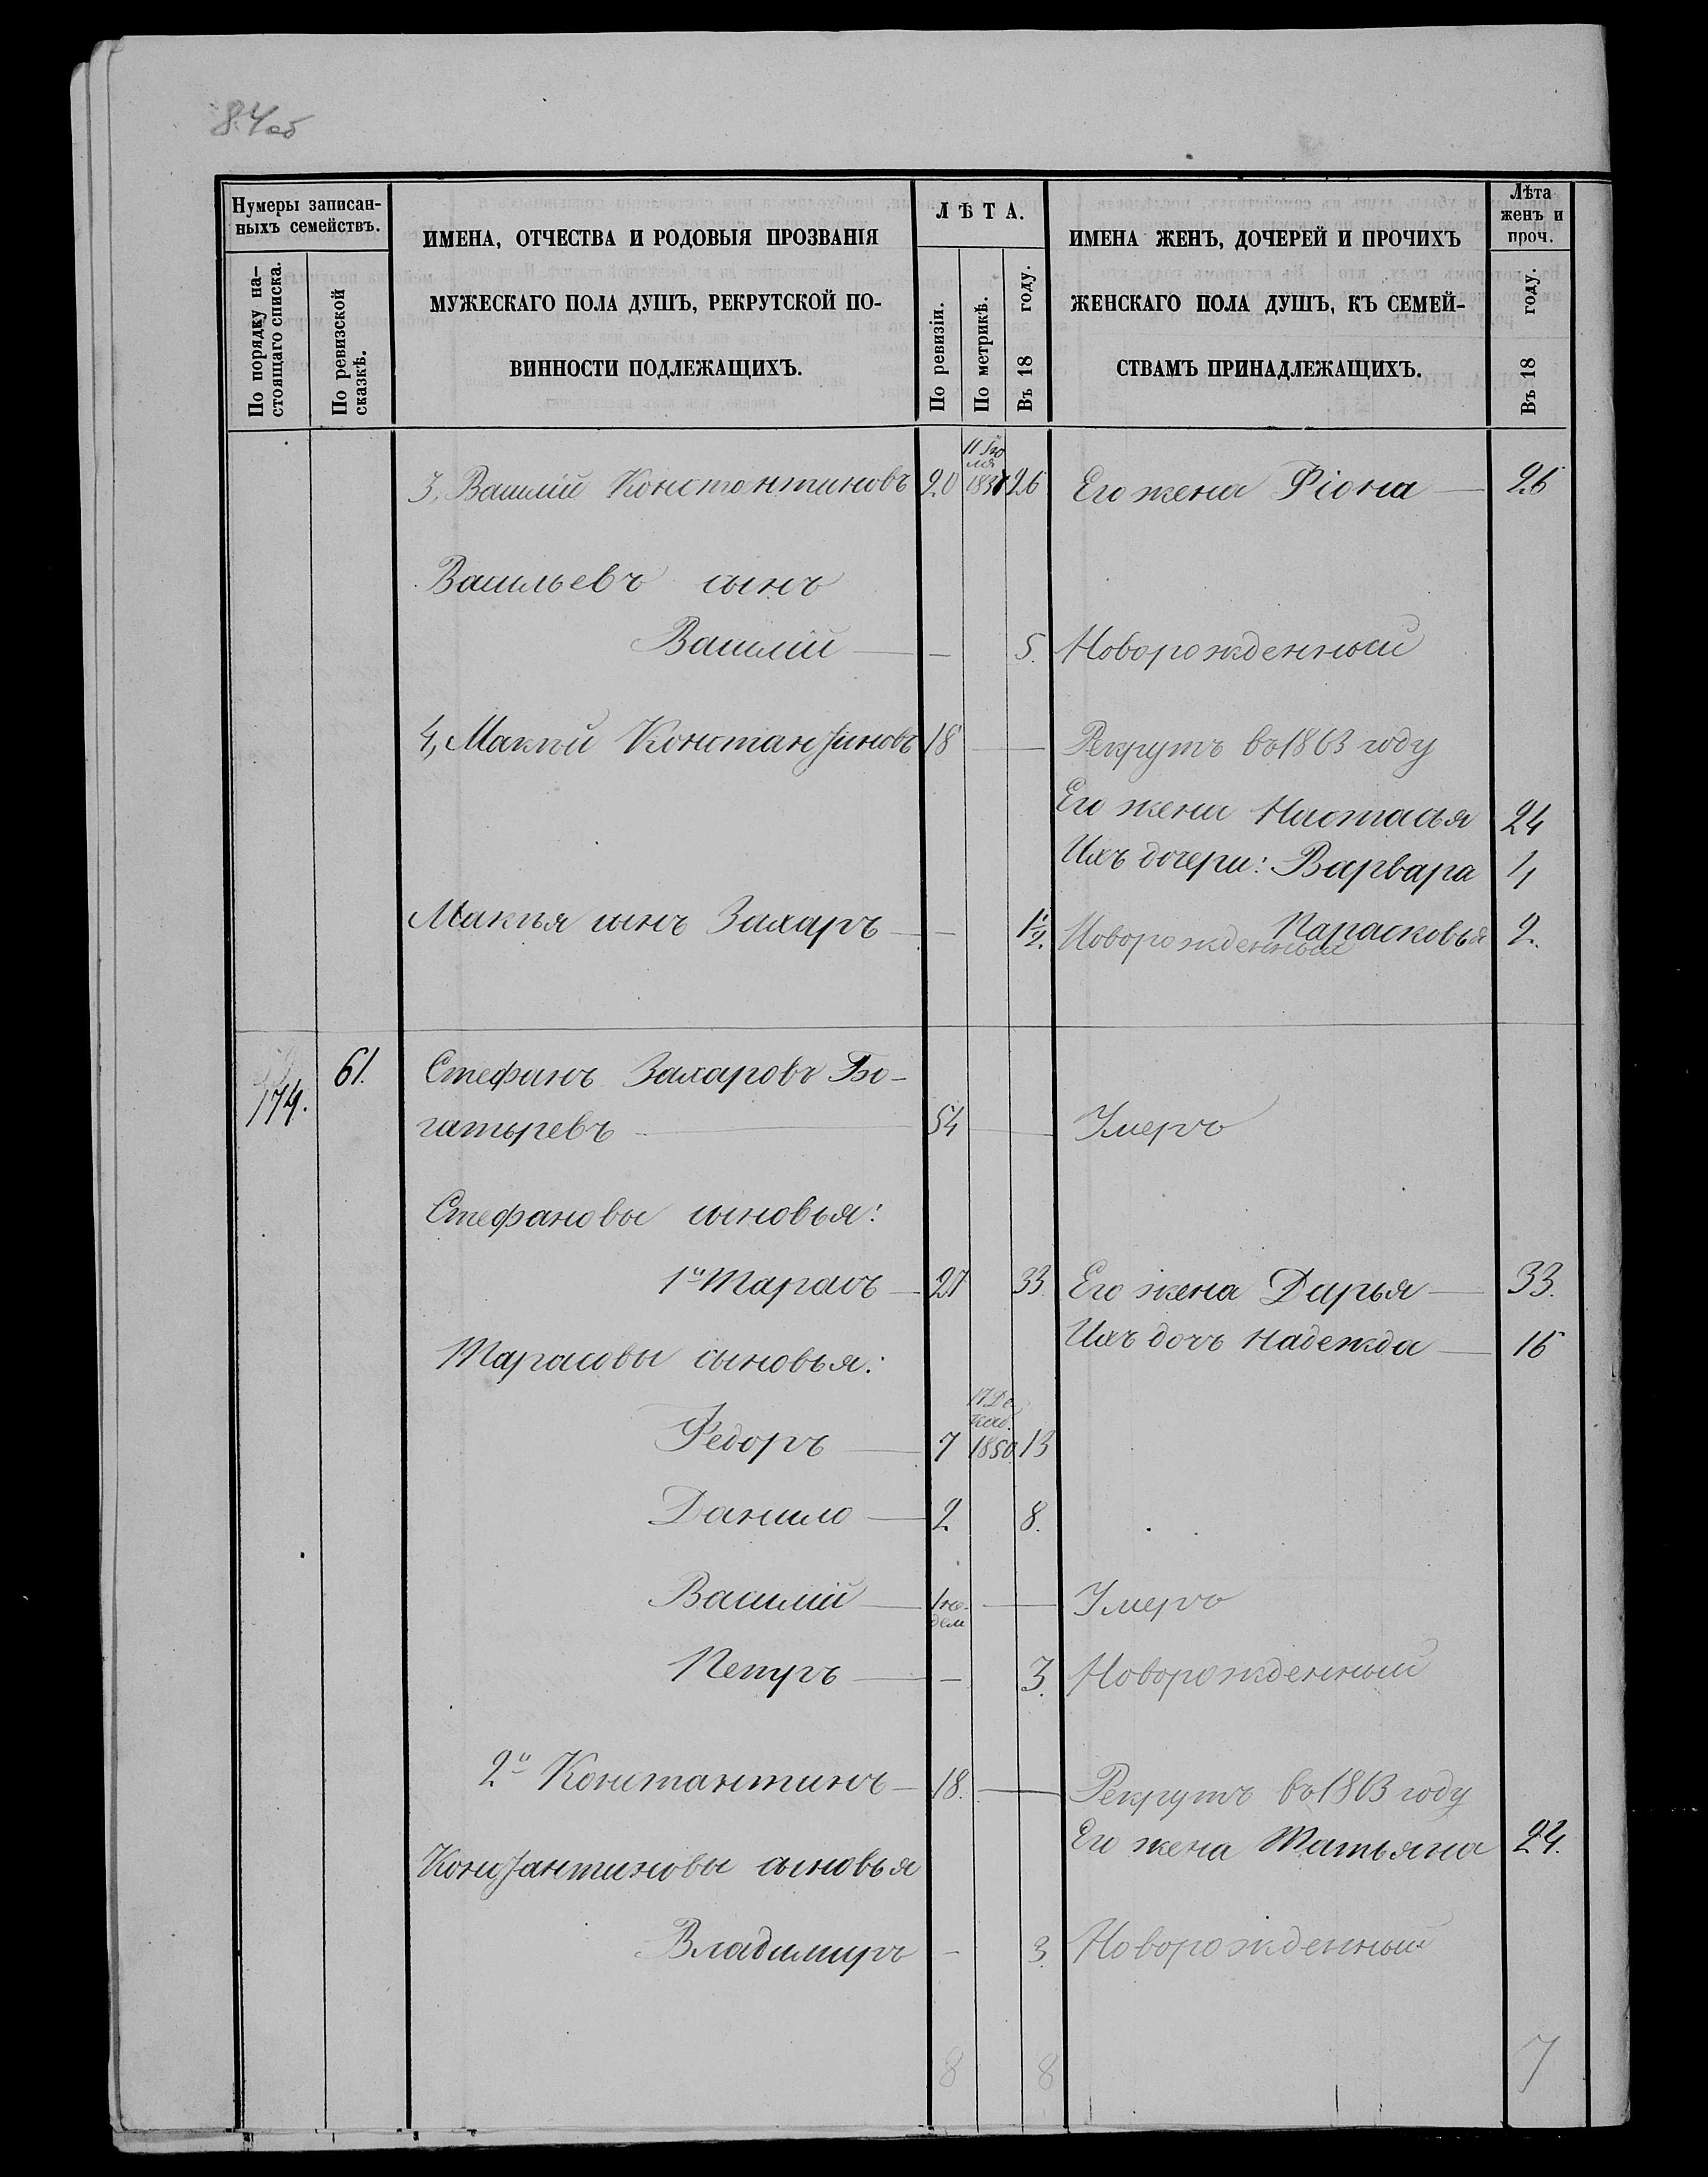 84об
Нумеры записан-
ныхъ семействъ.
По порядку на-
стоящаго списка.
По ревизской
сказкѣ.
ИМЕНА, ОТЧЕСТВА И РОДОВЫЯ ПРОЗВАНІЯ
МУЖЕСКАГО ПОЛА ДУШЪ, РЕКРУТСКОЙ ПО-
ВИННОСТИ ПОДЛЕЖАЩИХЪ.
ЛѢТА.
По ревизіи.
По метрикѣ.
Въ 18 году.
ИМЕНА ЖЕНЪ, ДОЧЕРЕЙ И ПРОЧИХЪ
ЖЕНСКАГО ПОЛА ДУШЪ, КЪ СЕМЕЙ-
СТВАМЪ ПРИНАДЛЕЖАЩИХЪ.
Лѣта
женъ и
проч.
Въ 18 году.
3, Василій Константиновъ 20 11 Ію
ля
1837 26 Его жена Ѳіона 26
Васильевъ сынъ
Василій — 5. Новорожденный
4, Мокѣй Константиновъ 18 — Рекрутъ во 1863 году
Его жена Настасья 24
Ихъ дочери: Варвара 4
Парасковья 2.
Мокѣя сынъ Захаръ — 1/2. Новорожденный
174. 61. Стефанъ Захаровъ Бо-
гатыревъ 54 — Умеръ
Стефановы сыновья:
1й Тарасъ 27 33. Его жена Дарья 33.
Ихъ дочь Надежда 16
Тарасовы сыновья:
Федоръ 7 17 Де
каб.
1850 13
Данило 2 8.
Василій 1 не-
дели — Умеръ
Петръ — 3. Новорожденный
2й Константинъ 18. — Рекрутъ во 1863 году
Его жена Татьяна 24.
Константиновы сыновья
Владимиръ — 3. Новорожденный
8 8 7